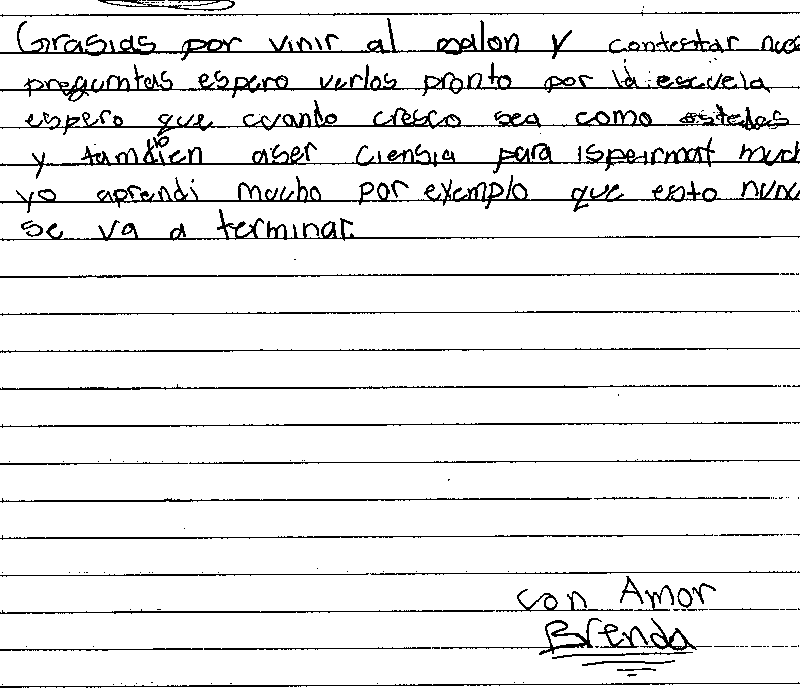 Grasias por vinir al salon y contestar nues
preguntas espero verlos pronto por la escuela
espero que cuando cresco sea como ustedes
y tambien aser ciensia para ispeirmat much
yo aprendi mucho por exemplo que esto nunc
se va a terminar.
con Amor
Brenda